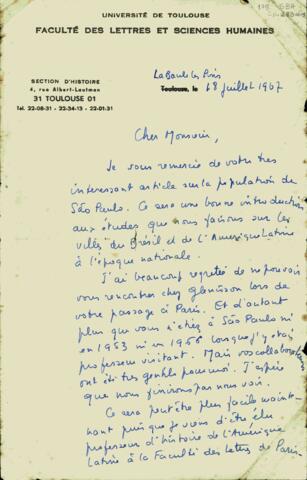 UNIVERSITÉ DE TOULOUSE
FACULTÉ DES LETTRES ET SCIENCES HUMAINES
SECTION D'HISTOIRE
4, rue Albert-Lautman
31 TOULOUSE 01
Tél. 22-08-31 - 22-34-13 - 22-01-31
La Baule les Pins
Toulouse, le 18 juillet 1967
Cher Monsieur,
Je vous remercie de votre très
intéressant article sur la population de
São Paulo. Ce sera une bonne introduction
aux études que nous faisons sur les
villes du Brésil et de l'Amérique Latine
à l'époque nationale.
J'ai beaucoup regretté de ne pouvoir
vous rencontrer chez Glénisson lors de
votre passage à Paris. Et d'autant
plus que vous n'étiez à São Paulo ni
en 1963 ni en 1966 lorsque j'y étais
professeur visitant. Mais vos collaborateurs
ont été très gentils pour moi. J'espère
que nous finirons par nous voir.
Ce sera peut-être plus facile mainte-
nant puisque je viens d'être élu
professeur d'histoire de l'Amérique
Latine à la Faculté des Lettres de Paris-